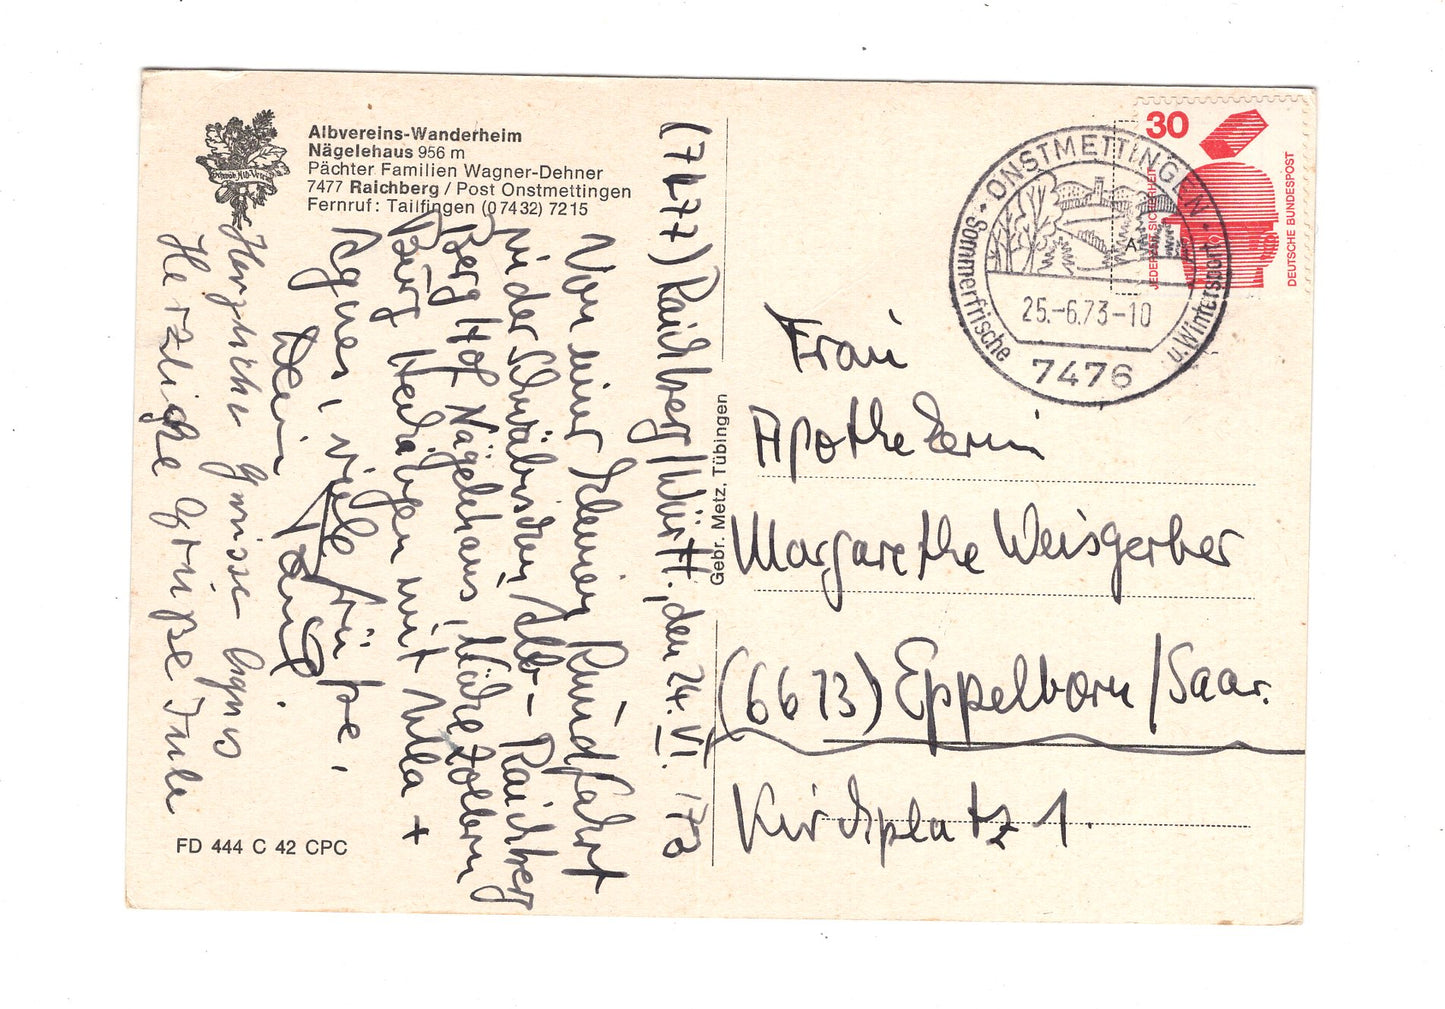 Albvereins-Wanderheim
Nägelehaus 956 m
Pächter Familien Wagner-Dehner
7477 Raichberg / Post Onstmettingen
Fernruf: Tailfingen (0 74 32) 7215
Schwäb. Alb-Verein
(7477) Raichberg/Württ., den 24. VI. '73
Von einer kleinen Rundfahrt
in der Schwäbischen Alb - Raichberg
Berghof Nägelehaus, Nähe Zollern
Burg Hechingen mit Ulla +
Agnes, viele Grüße,
Dein
Herzliche Grüsse Agnes
Herzliche Grüße Eure
FD 444 C 42 CPC
Gebr. Metz, Tübingen
30
JEDERZEIT SICHERHEIT
DEUTSCHE BUNDESPOST
A
ONSTMETTINGEN
Sommerfrische u. Wintersport
25.-6.73-10
7476
Frau
Apothekerin
Margarethe Weisgerber
(6673) Eppelborn/Saar.
Kirchplatz 1.